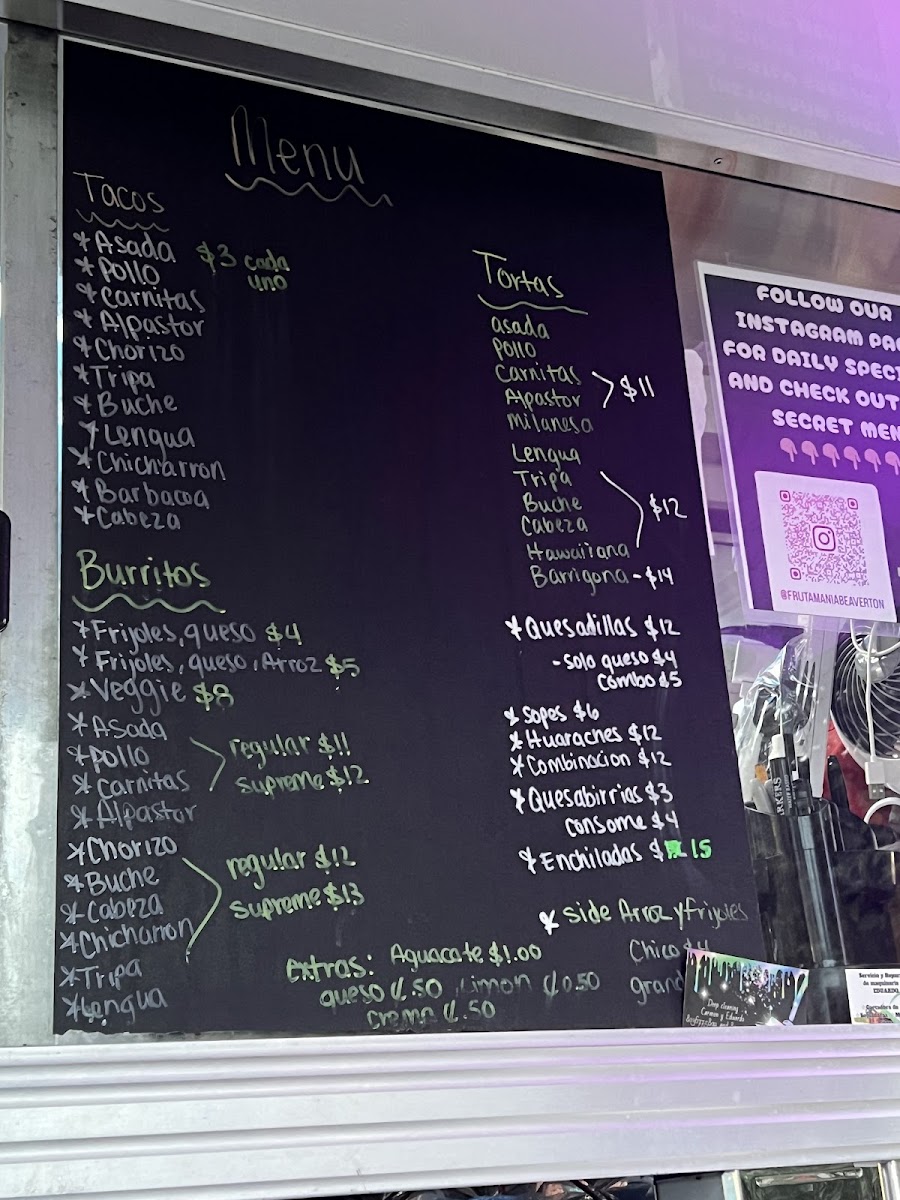 Menu
Tacos
*Asada
*Pollo
*Carnitas
*Alpastor
*Chorizo
*Tripa
*Buche
*Lengua
*Chicharron
*Barbacoa
*Cabeza
$3 cada
uno
Burritos
*Frijoles, queso $4
*Frijoles, queso, Arroz $5
*Veggie $8
*Asada
*Pollo
*Carnitas
*Alpastor
regular $11
supreme $12
*Chorizo
*Buche
*Cabeza
*Chicharron
*Tripa
*Lengua
regular $12
supreme $13
Extras: Aguacate $1.00
queso ₡.50 Limon ₡0.50
crema ₡.50
Tortas
asada
Pollo
Carnitas
Alpastor
Milanesa
$11
Lengua
Tripa
Buche
Cabeza
Hawaiiana
$12
Barrigona - $14
*Quesadillas $12
- solo queso $4
combo $5
*Sopes $6
*Huaraches $12
*Combinacion $12
*Quesabirrias $3
consome $4
*Enchiladas $ 15
*side Arroz y frijoles
Chico $4
grand
FOLLOW OUR
INSTAGRAM PA
FOR DAILY SPECI
AND CHECK OUT
SECRET MEN
@FRUTAMANIABEAVERTON
Deep cleaning
Carmen y Eduardo
Servicio y Repar
de maquinaria
EDUARDO